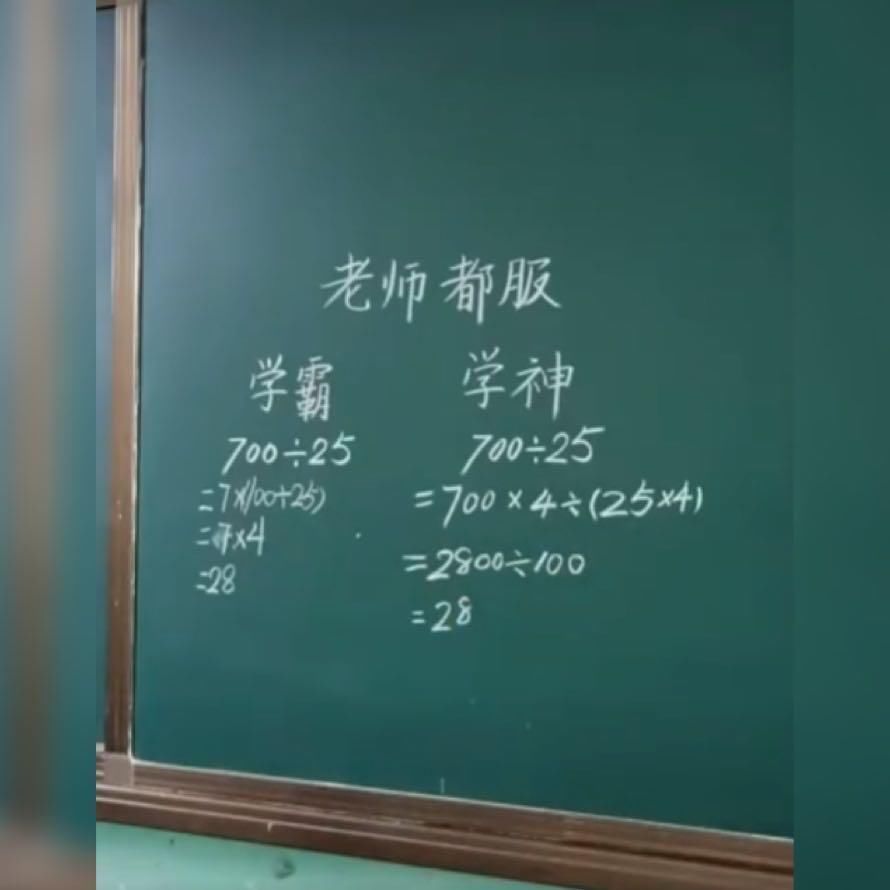 老师都服
学霸
700÷25
=7×(100÷25)
=7×4
=28
学神
700÷25
=700×4÷(25×4)
=2800÷100
=28